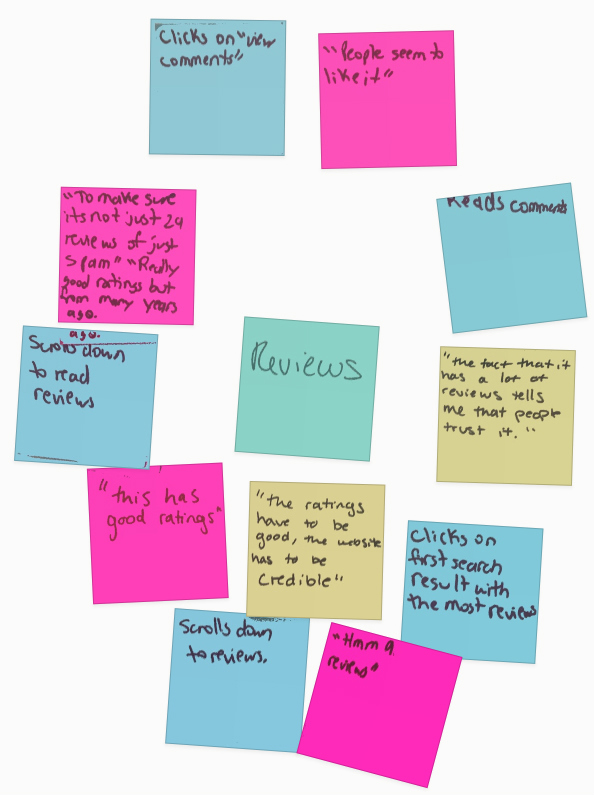 Clicks on "view
comments"
"People seem to
like it"
"To make sure
its not just 29
reviews of just
spam" "Really
good ratings but
from many years
ago.
Reads comments
ago.
Scrolls down
to read
reviews
Reviews
"the fact that it
has a lot of
reviews tells
me that people
trust it."
"this has
good ratings"
"the ratings
have to be
good, the website
has to be
credible"
Clicks on
first search
result with
the most reviews
Scrolls down
to reviews.
"Hmm 9
reviews"